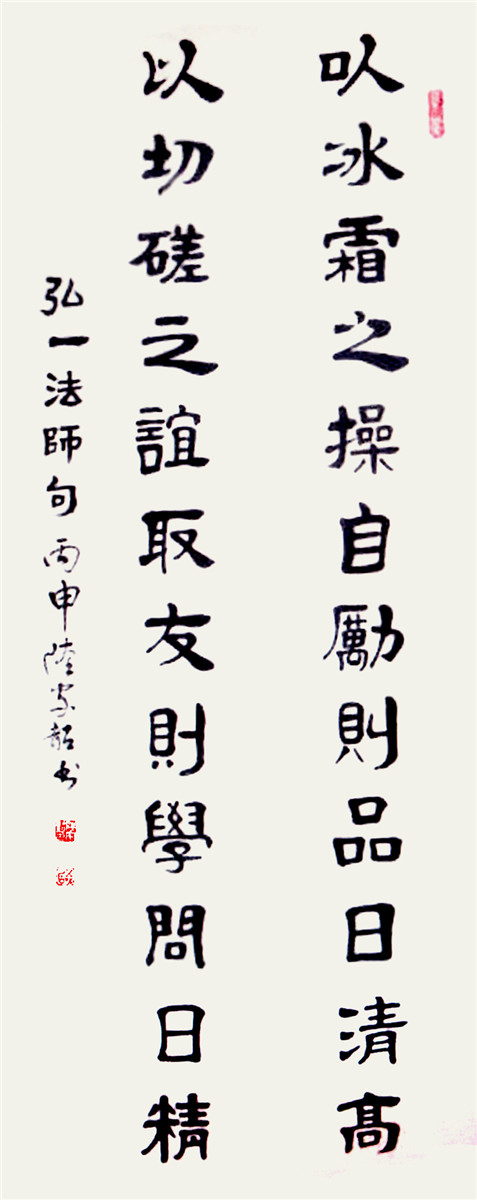 以冰霜之操自勵則品日清髙
以切磋之誼取友則學問日精
弘一法師句丙申陸家韶书